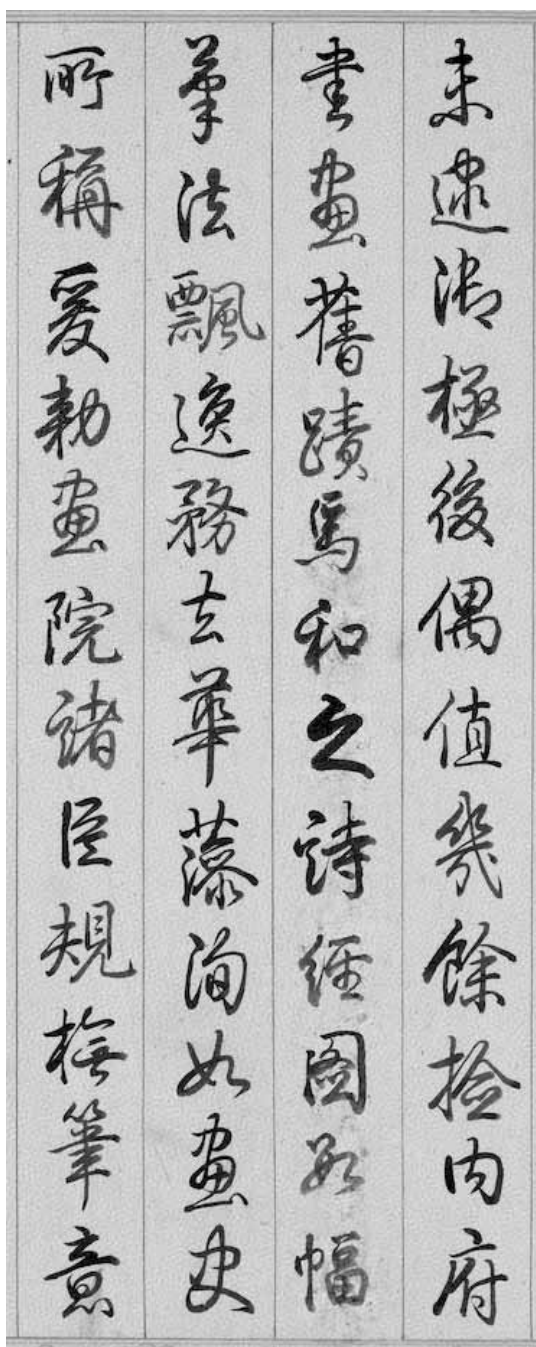 未逮御極後偶值幾餘撿内府
書畫舊蹟馬和之詩經圖數幅
筆法飄逸務去華藻洵如畫史
所稱爰勅畫院諸臣規橅筆意